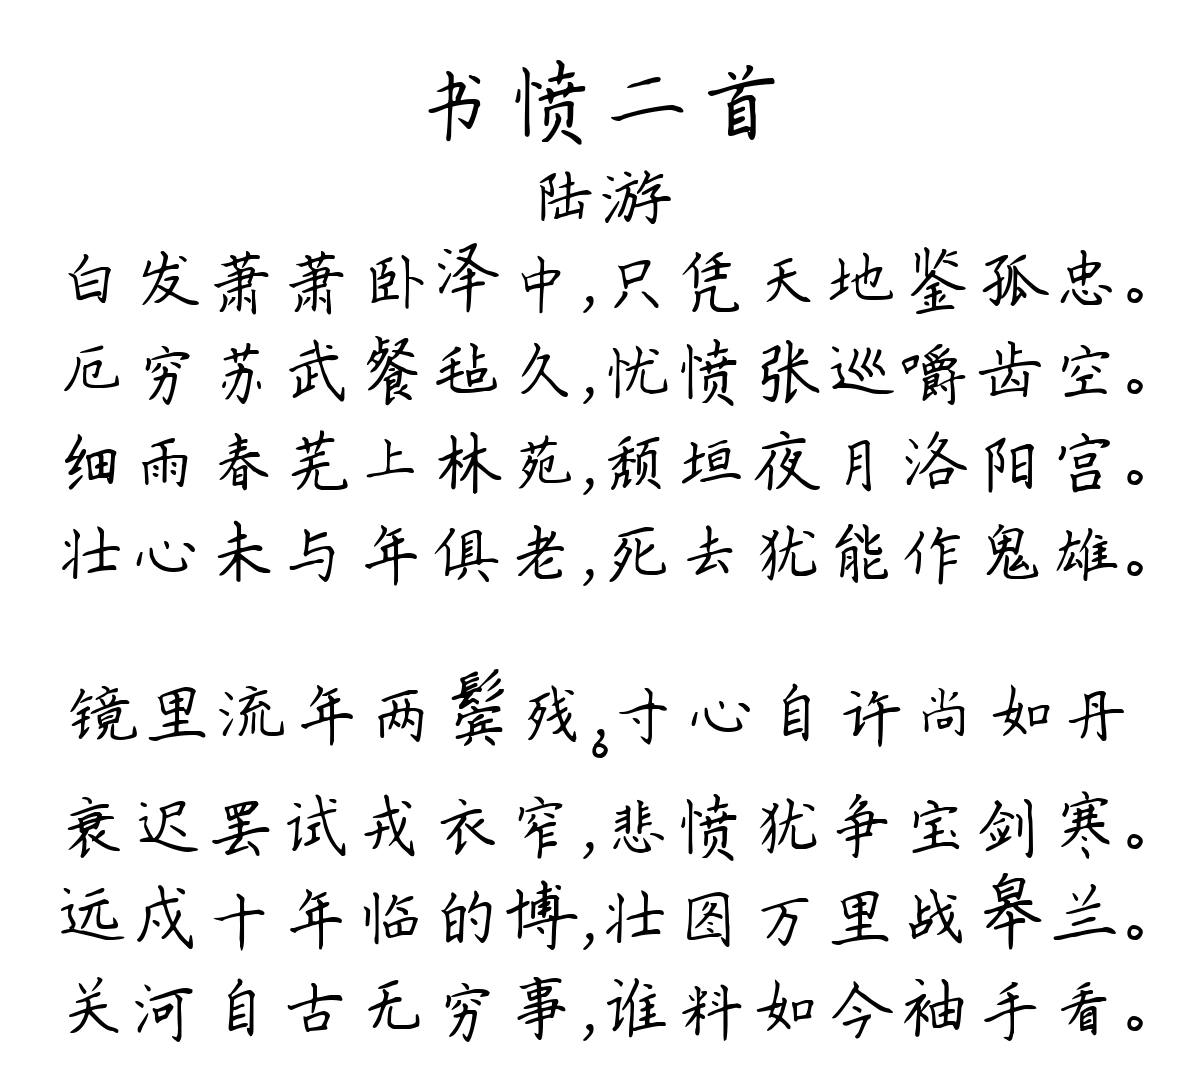 书愤二首
陆游
白发萧萧卧泽中,只凭天地鉴孤忠。
厄穷苏武餐毡久,忧愤张巡嚼齿空。
细雨春芜上林苑,颓垣夜月洛阳宫。
壮心未与年俱老,死去犹能作鬼雄。
镜里流年两鬓残,寸心自许尚如丹。
衰迟罢试戎衣窄,悲愤犹争宝剑寒。
远戍十年临的博,壮图万里战皋兰。
关河自古无穷事,谁料如今袖手看。